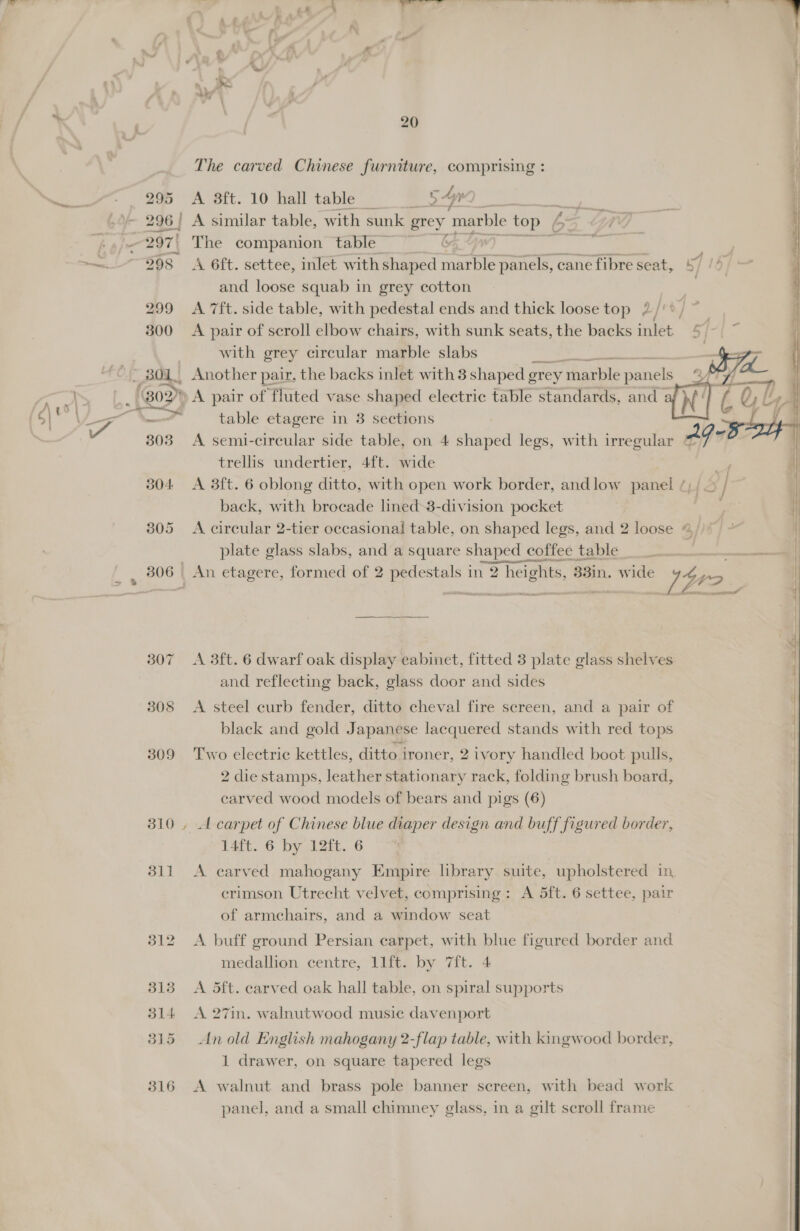 20
The carved Chinese furniture, comprising :
295 A 3ft. 10 hall table
296 A similar table, with sunk grey marble top
297 The companion table
298 A 6ft. settee, inlet with shaped marble panels, cane fibre seat,
and loose squab in grey cotton
299 A 7ft. side table, with pedestal ends and thick loose top
300 A pair of scroll elbow chairs, with sunk seats, the backs inlet
with grey circular marble slabs
301 Another pair, the backs inlet with 3 shaped grey marble panels
302 A pair of fluted vase shaped electric table standards, and a
table etagere in 3 sections
303 A semi-circular side table, on 4 shaped legs, with irregular
trellis undertier, 4ft. wide
304 A 3ft. 6 oblong ditto, with open work border, and low panel
back, with brocade lined 3-division pocket
305 A circular 2-tier occasional table, on shaped legs, and 2 loose
plate glass slabs, and a square shaped coffee table
306 An etagere, formed of 2 pedestals in 2 heights, 33in. wide
307 A 3ft. 6 dwarf oak display cabinet, fitted 3 plate glass shelves
and reflecting back, glass door and sides
308 A steel curb fender, ditto cheval fire screen, and a pair of
black and gold Japanese lacquered stands with red tops
309 Two electric kettles, ditto ironer, 2 ivory handled boot pulls,
2 die stamps, leather stationary rack, folding brush board,
carved wood models of bears and pigs (6)
310 A carpet of Chinese blue diaper design and buff figured border,
14ft. 6 by 12ft. 6
311 A carved mahogany Empire library suite, upholstered in
crimson Utrecht velvet, comprising : A 5ft. 6 settee, pair
of armchairs, and a window seat
312 A buff ground Persian carpet, with blue figured border and
medallion centre, 11ft. by 7ft. 4
313 A 5ft. carved oak hall table, on spiral supports
314 A 27in. walnutwood music davenport
315 An old English mahogany 2-flap table, with kingwood border,
1 drawer, on square tapered legs
316 A walnut and brass pole banner screen, with bead work
panel, and a small chimney glass, in a gilt scroll frame